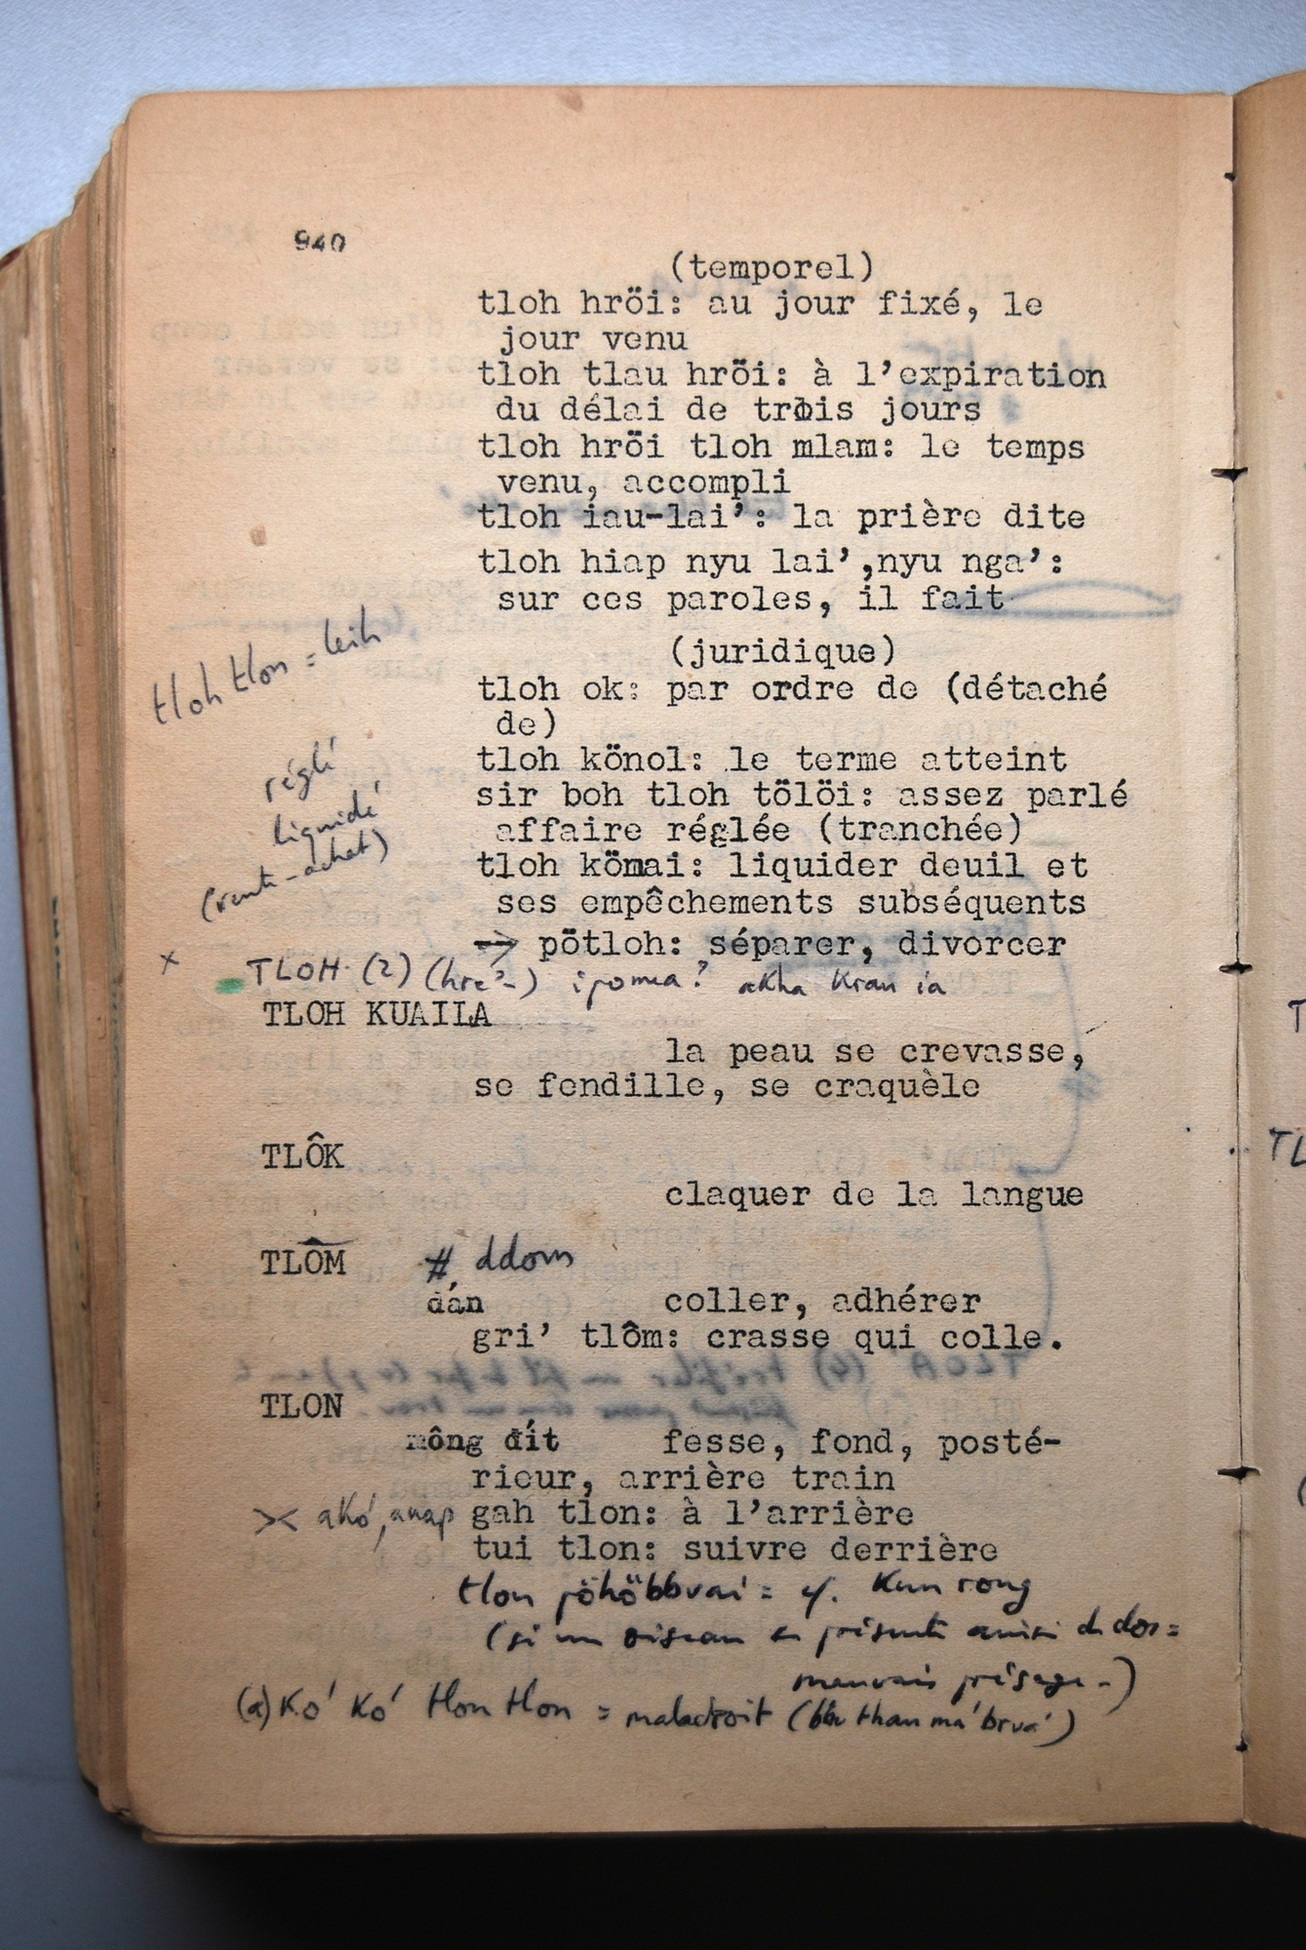 940
(temporel)
tloh hröi: au jour fixé, le
jour venu
tloh tlau hröi: à l'expiration
du délai de trois jours
tloh hröi tloh mlam: le temps
venu, accompli
tloh iau-lai': la prière dite
tloh hiap nyu lai',nyu nga':
sur ces paroles, il fait
(juridique)
tloh tlon = leih
tloh ok: par ordre de (détaché
de)
tloh könol: le terme atteint
réglé
sir boh tloh tölöi: assez parlé
liquidé
affaire réglée (tranchée)
(vente-achat)
tloh kömai: liquider deuil et
ses empêchements subséquents
→ pötloh: séparer, divorcer
x TLOH (2) (hre'-) ipomea? akha kran ia
TLOH KUAILA
la peau se crevasse,
se fendille, se craquèle
TLÔK
claquer de la langue
TLÔM # ddom
dán coller, adhérer
gri' tlôm: crasse qui colle.
TLON
mông đít fesse, fond, posté-
rieur, arrière train
>< akó, anap gah tlon: à l'arrière
tui tlon: suivre derrière
tlon = cf. Kun rong
(si un oiseau se présente ainsi de dos =
mauvais présage-)
(a) Kó' Kó' tlon tlon = maladroit